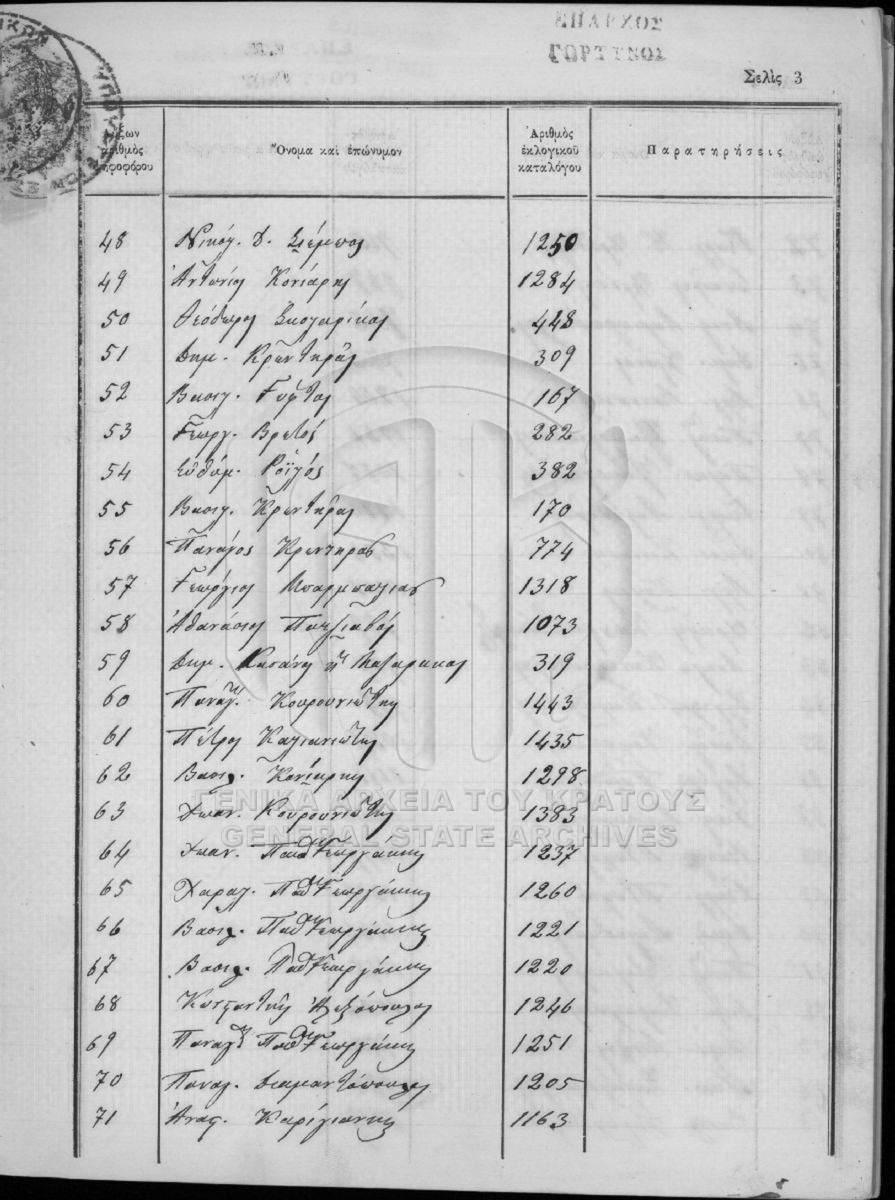 ΕΠΑΡΧΟΣ
ΓΟΡΤΥΝΟΣ
Σελὶς 3
αριθμὸς
Ὄνομα καὶ ἐπώνυμον
Ἀριθμὸς
ἐκλογικοῦ
καταλόγου
Παρατηρήσεις
48 Νικόλ. Δ. 1250
49 Ἀντώνιος Κονιάρης 1284
50 Θεόδωρος 448
51 Δημ. Κρωντηρᾶς 309
52 Βασιλ. Γύφτος 167
53 Γεωργ. Βρετός 282
54 Εὐθύμ. Ρόϊλός 382
55 Βασιλ. Κρωντηρᾶς 170
56 Παναγος Κρωντηρας 774
57 Γεώργιος 1318
58 Ἀθανάσιος 1073
59 Δημ. ἢ 319
60 Παναγ. Κουρουνιώτης 1443
61 Πέτρος Καλιανιώτης 1435
62 Βασιλ. Κονιάρης 1298
63 Ιωαν. Κουρουνιώτης 1383
64 Ιωαν. Παπᾶ Γεωργάκης 1237
65 Χαραλ. Παπᾶ Γεωργάκης 1260
66 Βασιλ. Παπᾶ Γεωργάκης 1221
67 Βασιλ. Παπᾶ Γεωργάκης 1220
68 Κωνσταντῆς Ἀλεξόπουλος 1246
69 Παναγ. Παπᾶ Γεωργάκης 1251
70 Παναγ. Διαμαντόπουλος 1205
71 Ἀνας. Καρίγιαννης 1163
ΓΕΝΙΚΑ ΑΡΧΕΙΑ ΤΟΥ ΚΡΑΤΟΥΣ
GENERAL STATE ARCHIVES